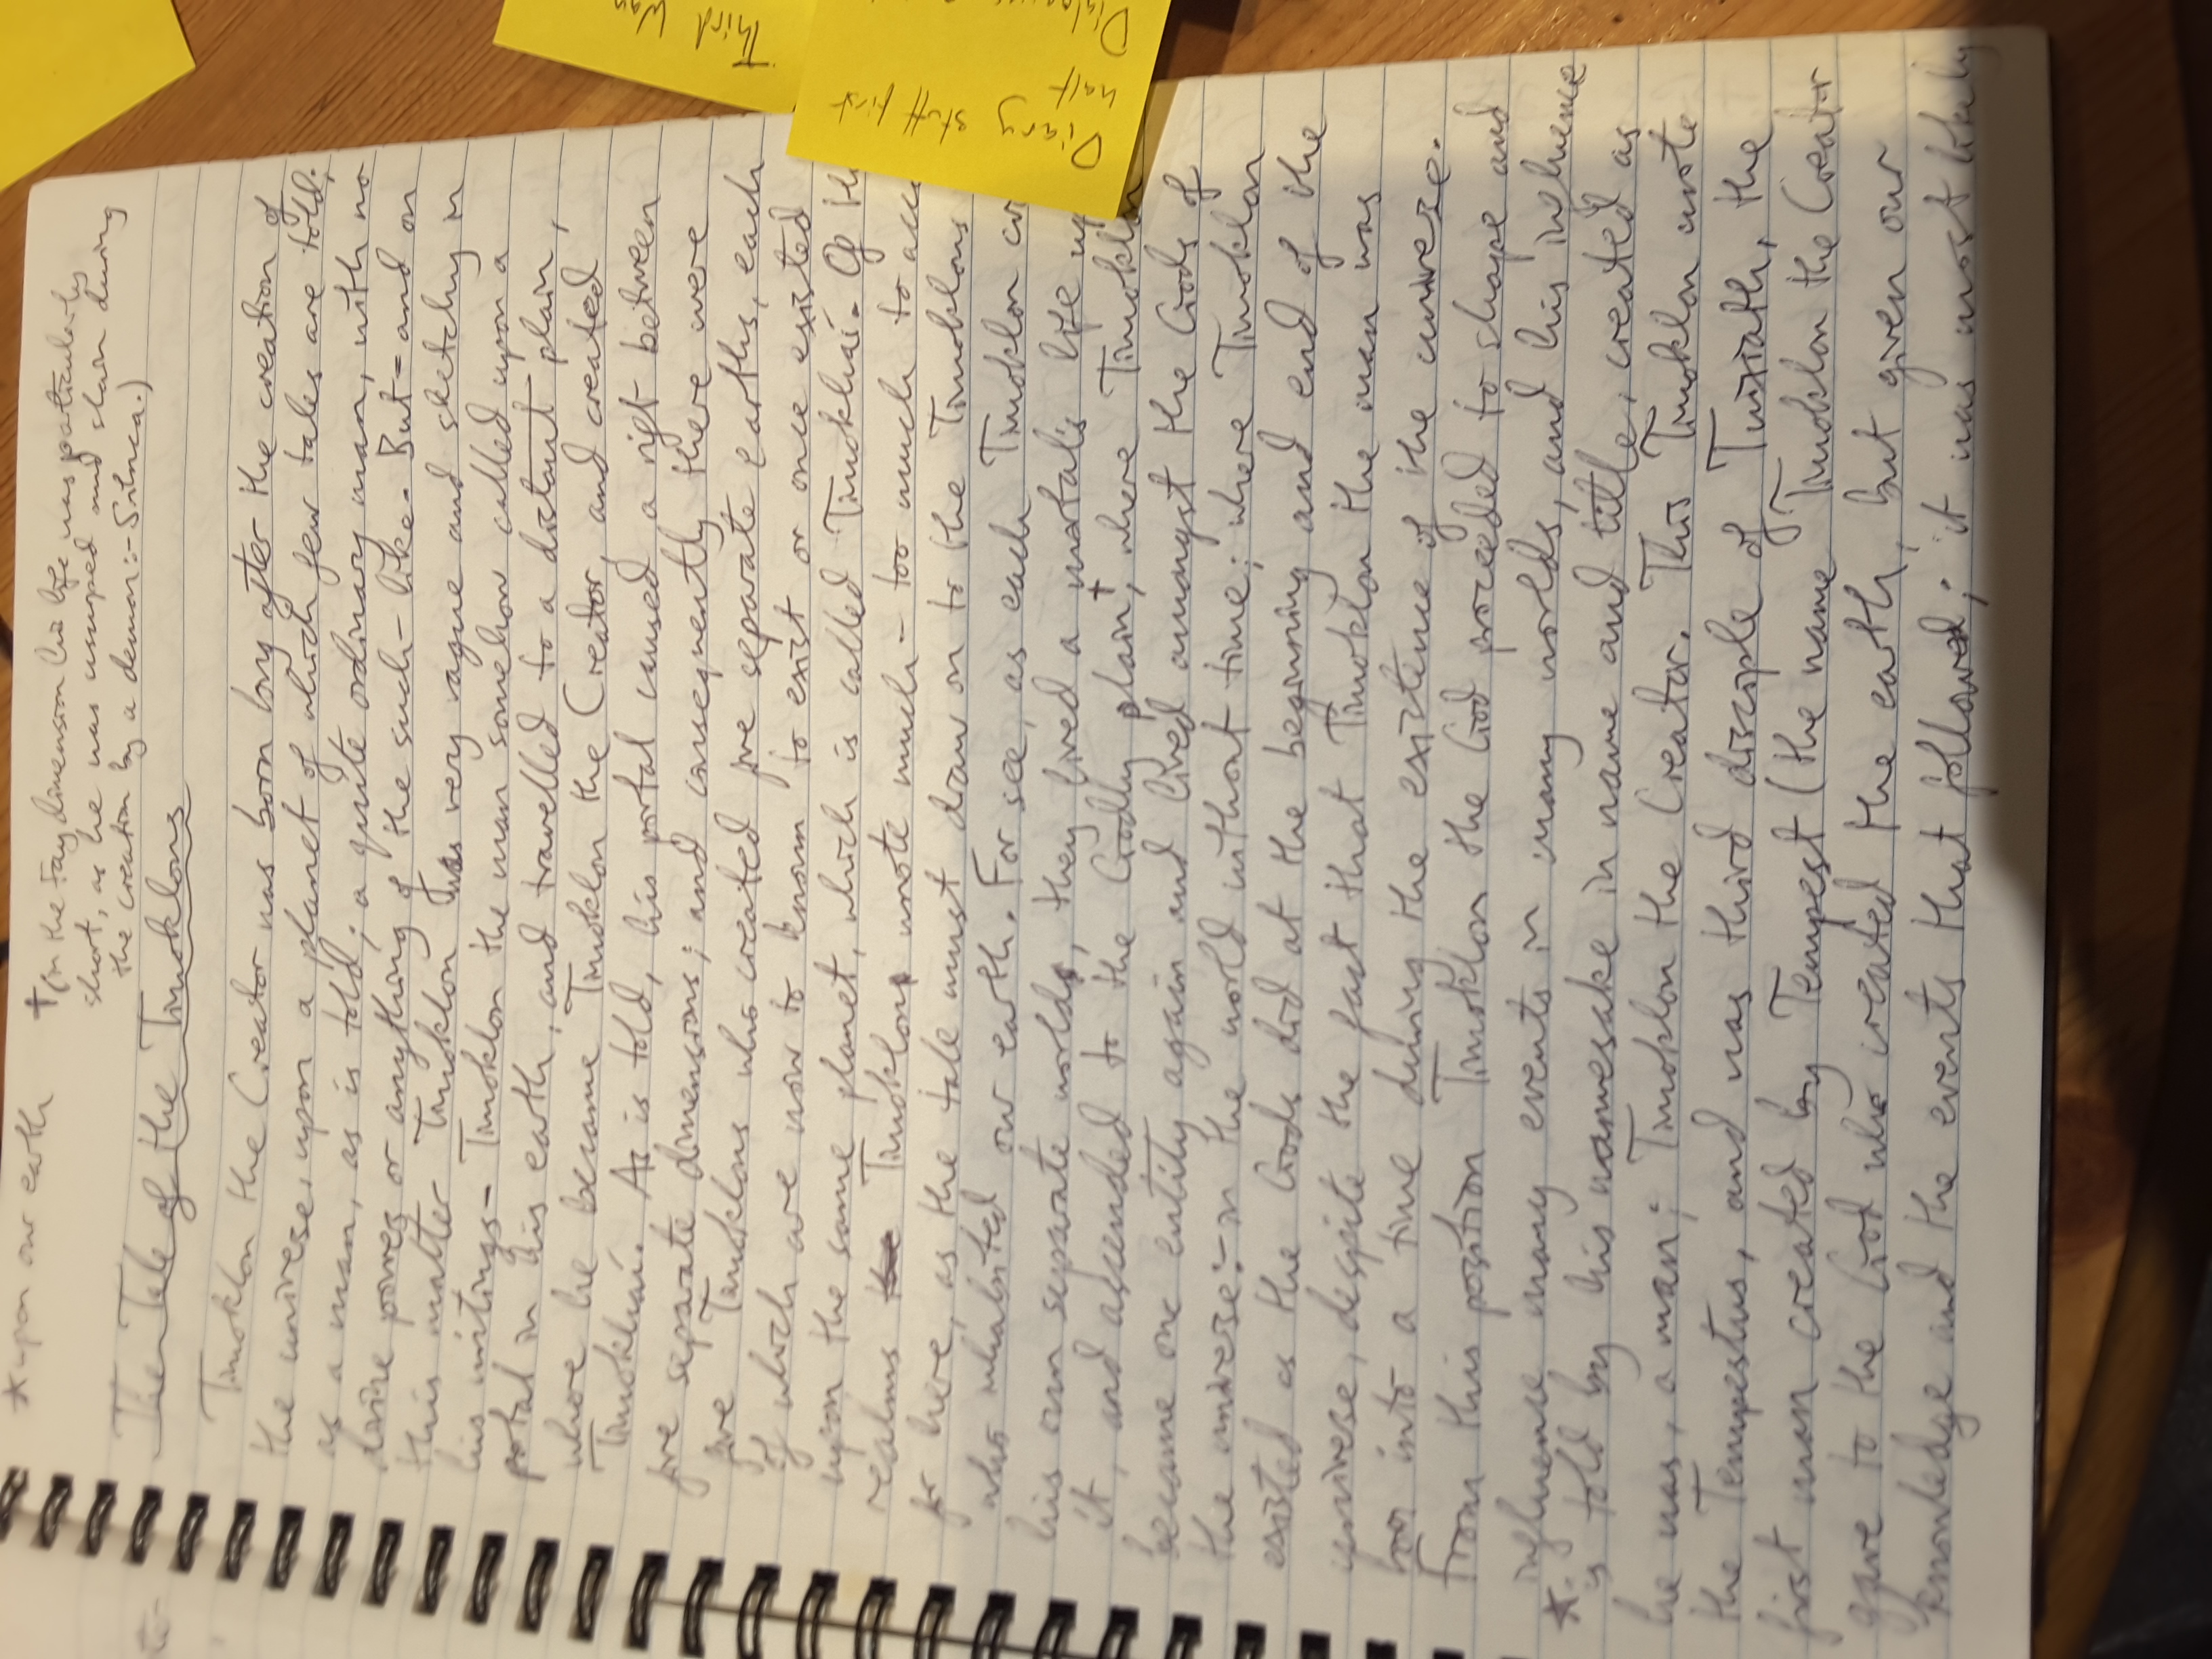 *upon our earth
†(in the Fay dimension his life was particularly
short, as he was usurped and slain during
the creation by a demon:-
The Tale of the Timoklons
Timoklon the Creator was born long after the creation of
the universe, upon a planet of which few tales are told;
as a man, as is told; a quite ordinary man, with no
divine powers or anything of the such-like. But - and on
this matter Timoklon was very vague and sketchy in
his writings - Timoklon the man somehow called upon a
portal in his earth, and travelled to a distant plain,
where he became Timoklon the Creator, and created
Timokhaí. As is told, his portal caused a rift between
five separate dimensions; and consequently there were
five Timoklons who created five separate earths, each
of which are now to known to exist or once existed
upon the same planet, which is called Timokhaí. Of
realms the Timoklons wrote much - too much to
for here, as the tale must draw on to the Timoklons
who inhabited our earth. For see, as each Timoklon
his own separate worlds, they lived a mortal's life
it, and ascended to the Godly plain†, where Timoklon
became one entity again and lived amongst the Gods of
the universe:- in the world without time; where Timoklon
existed as the Gods did at the beginning and end of the
universe, despite the fact that Timoklon the man was
born into a time during the existence of the universe.
From this position Timoklon the God proceeded to shape and
influence many events in many worlds, and his influence
*is told by his namesake in name and title, created as
he was, a man; Timoklon the Creator. This Timoklon wrote
the Tempestus, and was third disciple of Tuixiath, the
first man created by Tempest (the name Timoklon the Creator
gave to the God who created the earth, but given our
knowledge and the events that followed; it was most likely
Third
Diary stuff first
half